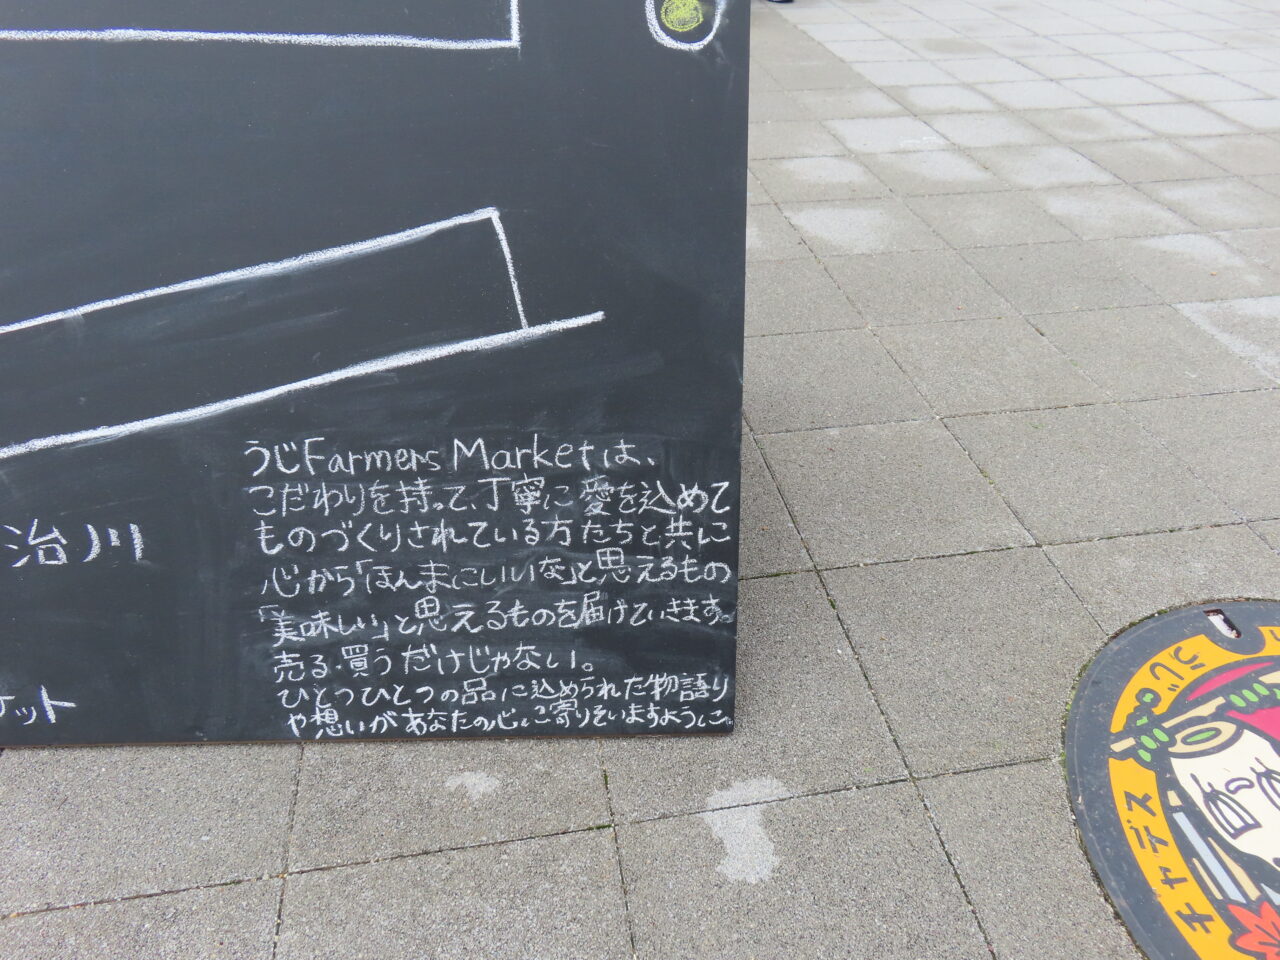 うじFarmers Marketは、
こだわりを持って、丁寧に愛を込めて
ものづくりされている方たちと共に
心から「ほんまにいいな」と思えるもの
「美味しい」と思えるものを届けていきます。
売る・買うだけじゃない。
ひとつひとつの品に込められた物語り
や想いがあなたの心に寄りそいますように。
治川
ケット
チャデス